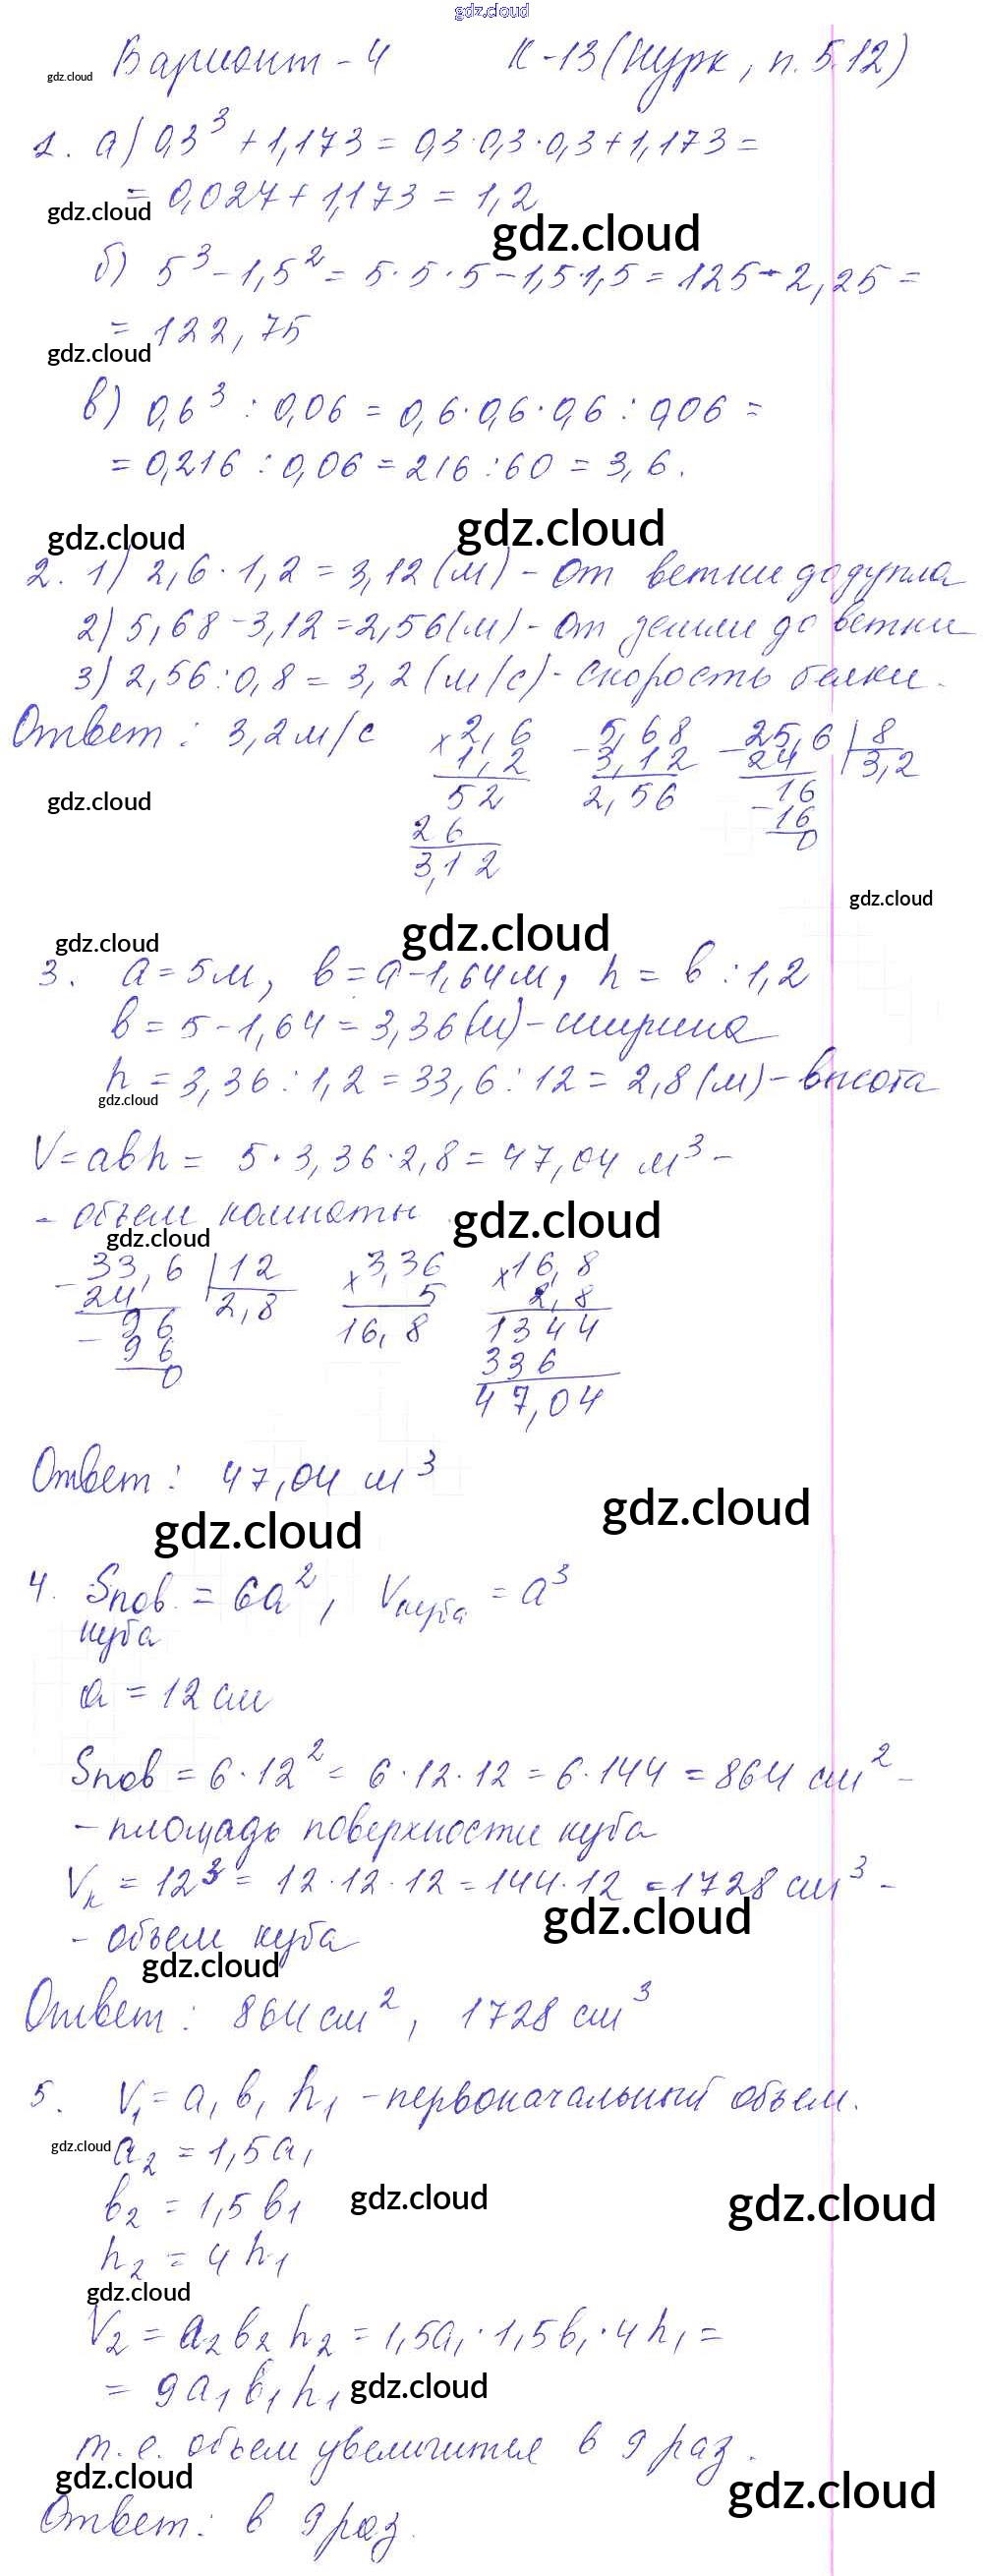 gdz.cloud
Вариант - 4 К-13 (Нурк, п. 5.12)
gdz.cloud
1. а) 0,3³ + 1,173 = 0,3·0,3·0,3 + 1,173 =
= 0,027 + 1,173 = 1,2
gdz.cloud
gdz.cloud
б) 5³ - 1,5² = 5·5·5 - 1,5·1,5 = 125 - 2,25 =
= 122,75
gdz.cloud
в) 0,6³ : 0,06 = 0,6·0,6·0,6 : 0,06 =
= 0,216 : 0,06 = 216 : 60 = 3,6.
gdz.cloud gdz.cloud
2. 1) 2,6 · 1,2 = 3,12 (м) - от ветки до дупла
2) 5,68 - 3,12 = 2,56 (м) - от земли до ветки
3) 2,56 : 0,8 = 3,2 (м/с) - скорость белки.
Ответ: 3,2 м/с
× 2,6 - 5,68 - 25,6 | 8
1,2 3,12 24 3,2
52 2,56 16
gdz.cloud
26 - 16
3,12 0
gdz.cloud
gdz.cloud gdz.cloud
3. a = 5 м, b = a - 1,64 м, h = b : 1,2
b = 5 - 1,64 = 3,36 (м) - ширина
h = 3,36 : 1,2 = 33,6 : 12 = 2,8 (м) - высота
gdz.cloud
V = abh = 5 · 3,36 · 2,8 = 47,04 м³ -
- объем комнаты
gdz.cloud
gdz.cloud
- 33,6 | 12 × 3,36 × 16,8
24 2,8 5 2,8
- 96 16,8 1344
96 336
0 47,04
Ответ: 47,04 м³
gdz.cloud gdz.cloud
4. Sпов. = 6a², Vкуба = a³
куба
a = 12 см
Sпов = 6 · 12² = 6 · 12 · 12 = 6 · 144 = 864 см² -
- площадь поверхности куба
Vк = 12³ = 12 · 12 · 12 = 144 · 12 = 1728 см³ -
gdz.cloud
- объем куба
gdz.cloud
Ответ: 864 см², 1728 см³
5. V₁ = a₁ b₁ h₁ - первоначальный объем.
gdz.cloud
a₂ = 1,5a₁
b₂ = 1,5 b₁
gdz.cloud gdz.cloud
h₂ = 4 h₁
gdz.cloud
V₂ = a₂ b₂ h₂ = 1,5a₁ · 1,5b₁ · 4h₁ =
= 9a₁ b₁ h₁
gdz.cloud
т.е. объем увеличится в 9 раз.
gdz.cloud gdz.cloud
Ответ: в 9 раз.